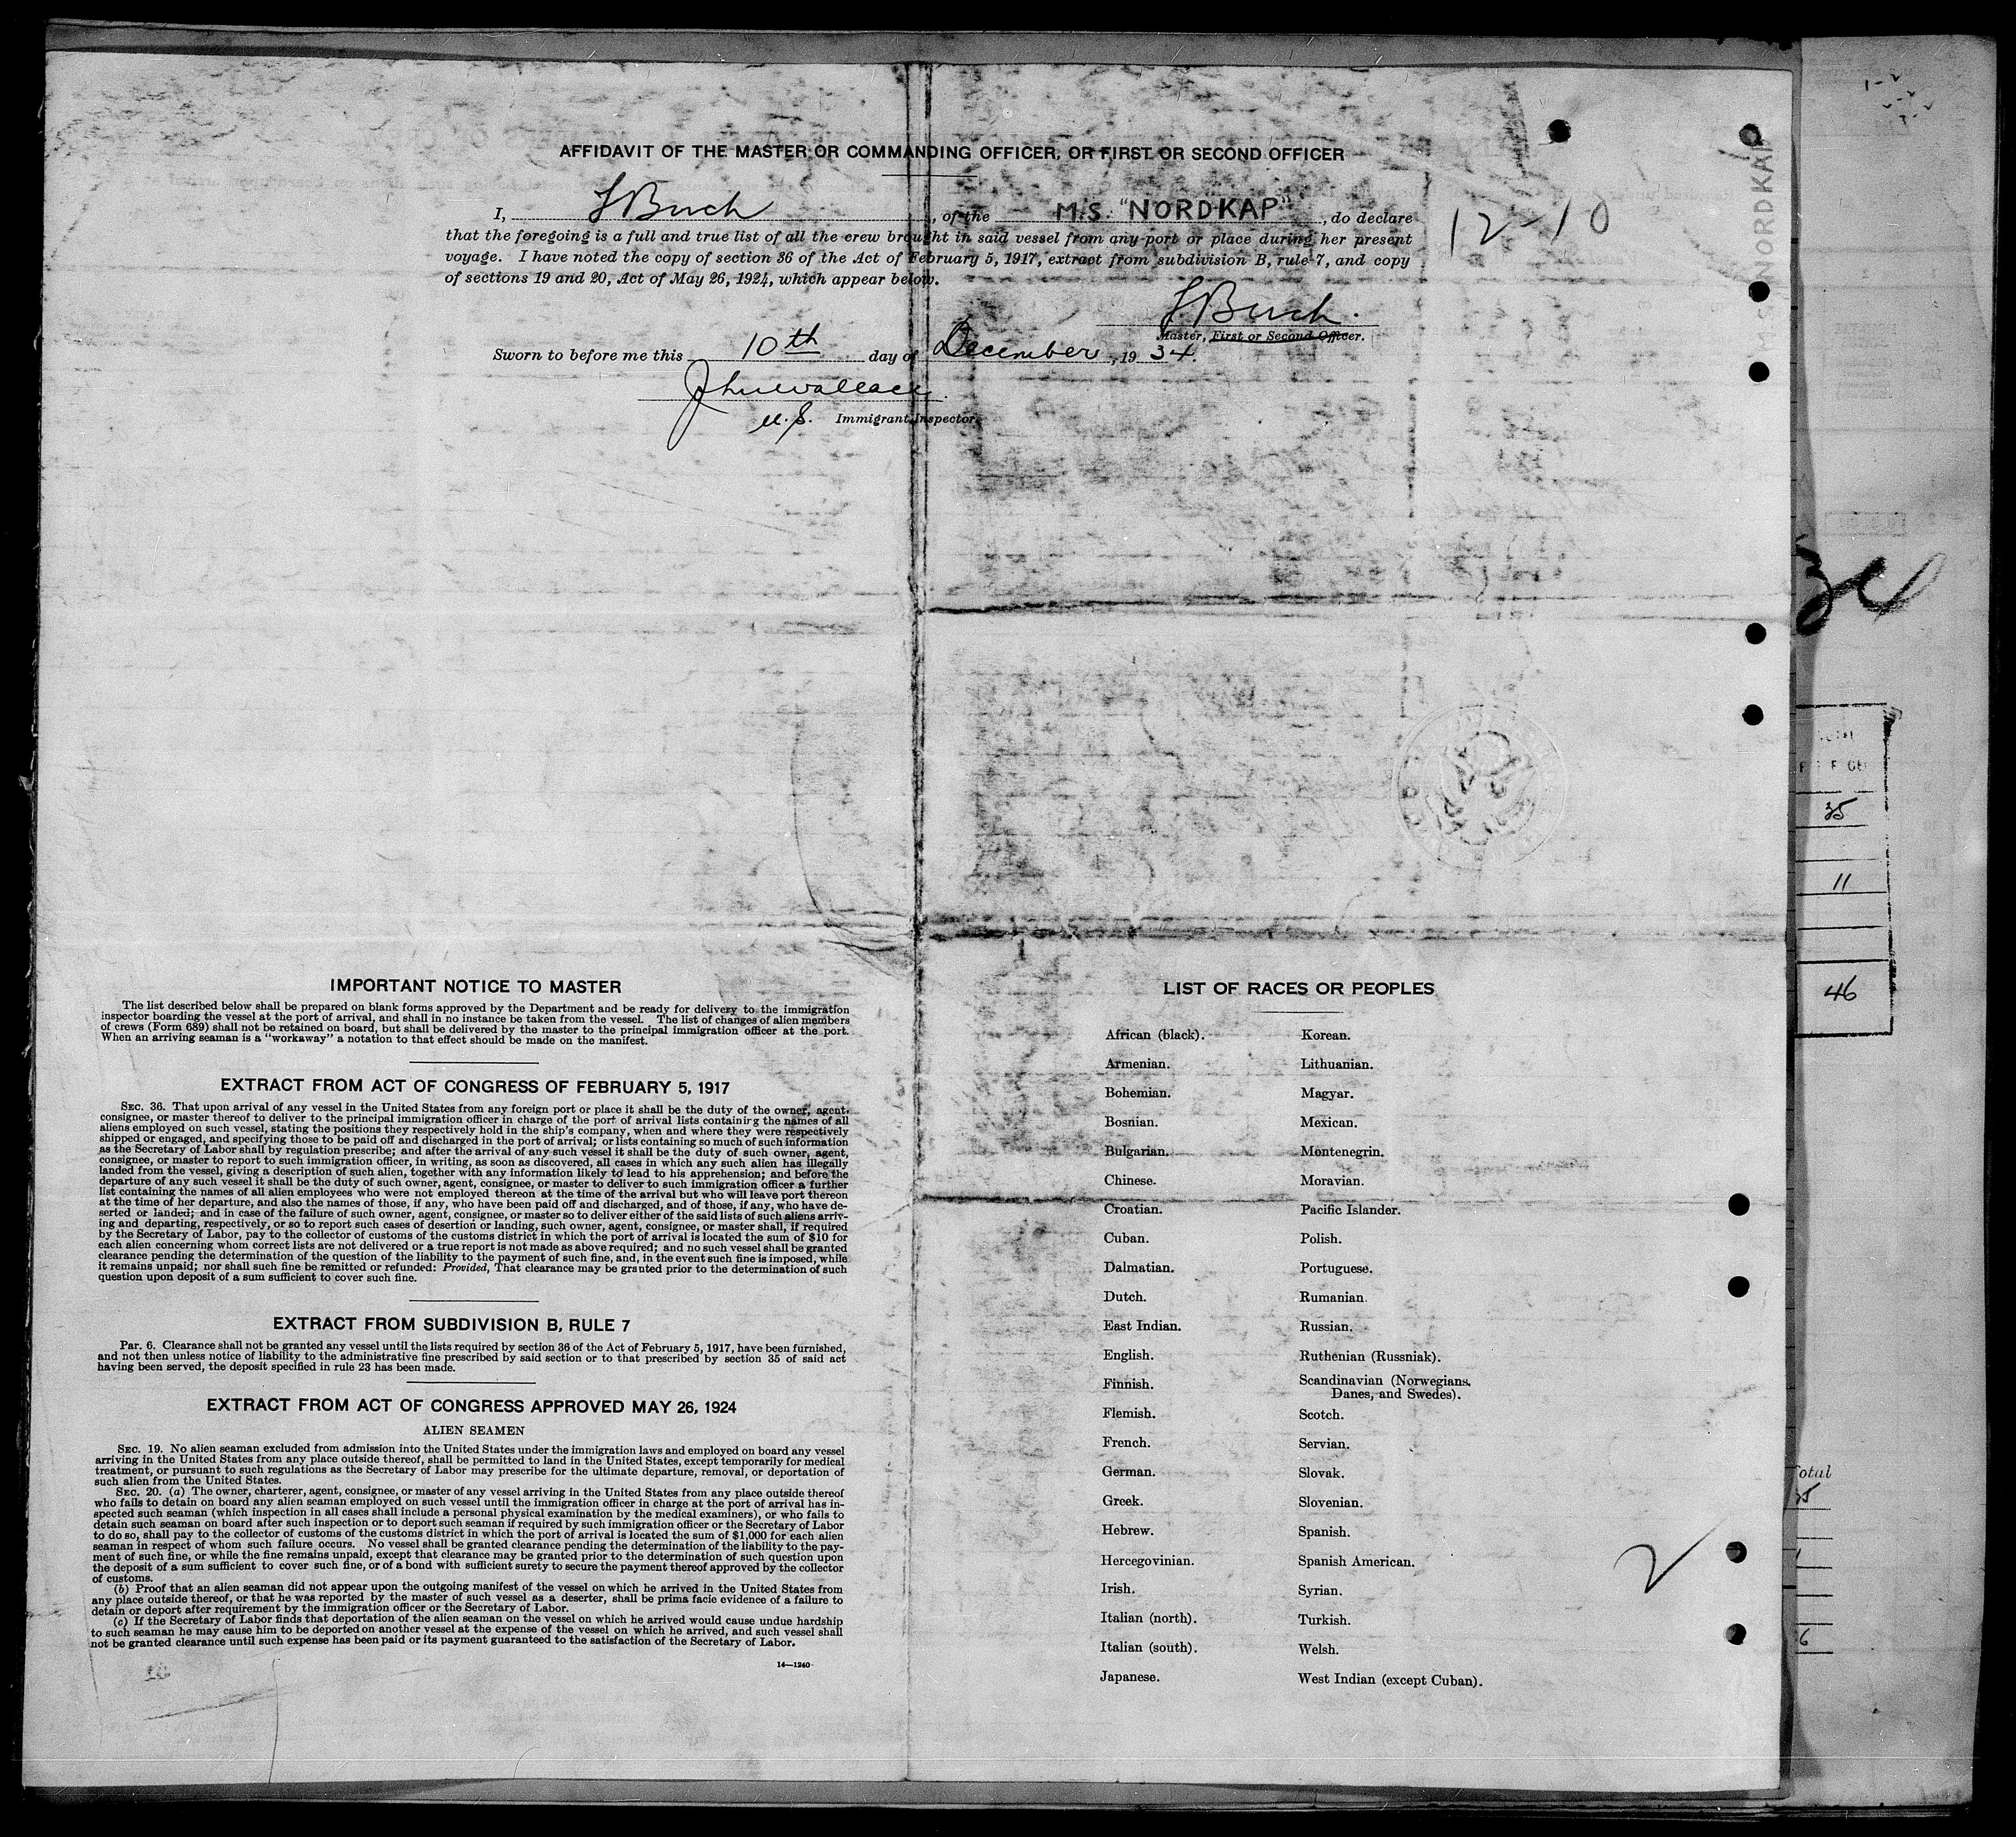 AFFIDAVIT OF THE MASTER OR COMMANDING OFFICER, OR FIRST OR SECOND OFFICER
I, J Busch, of the M.S. "NORDKAP", do declare
that the foregoing is a full and true list of all the crew brought in said vessel from any port or place during her present
voyage. I have noted the copy of section 36 of the Act of February 5, 1917, extract from subdivision B, rule 7, and copy
of sections 19 and 20, Act of May 26, 1924, which appear below.
12-10
M.S NORDKAP
J Busch.
Master, First or Second Officer.
Sworn to before me this 10th day of December, 1934.
Jhn Wallace
U.S. Immigrant Inspector.
35
11
46
IMPORTANT NOTICE TO MASTER
The list described below shall be prepared on blank forms approved by the Department and be ready for delivery to the immigration
inspector boarding the vessel at the port of arrival, and shall in no instance be taken from the vessel. The list of changes of alien members
of crews (Form 689) shall not be retained on board, but shall be delivered by the master to the principal immigration officer at the port.
When an arriving seaman is a "workaway" a notation to that effect should be made on the manifest.
EXTRACT FROM ACT OF CONGRESS OF FEBRUARY 5, 1917
SEC. 36. That upon arrival of any vessel in the United States from any foreign port or place it shall be the duty of the owner, agent,
consignee, or master thereof to deliver to the principal immigration officer in charge of the port of arrival lists containing the names of all
aliens employed on such vessel, stating the positions they respectively hold in the ship's company, when and where they were respectively
shipped or engaged, and specifying those to be paid off and discharged in the port of arrival; or lists containing so much of such information
as the Secretary of Labor shall by regulation prescribe; and after the arrival of any such vessel it shall be the duty of such owner, agent,
consignee, or master to report to such immigration officer, in writing, as soon as discovered, all cases in which any such alien has illegally
landed from the vessel, giving a description of such alien, together with any information likely to lead to his apprehension; and before the
departure of any such vessel it shall be the duty of such owner, agent, consignee, or master to deliver to such immigration officer a further
list containing the names of all alien employees who were not employed thereon at the time of the arrival but who will leave port thereon
at the time of her departure, and also the names of those, if any, who have been paid off and discharged, and of those, if any, who have de-
serted or landed; and in case of the failure of such owner, agent, consignee, or master so to deliver either of the said lists of such aliens arriv-
ing and departing, respectively, or so to report such cases of desertion or landing, such owner, agent, consignee, or master shall, if required
by the Secretary of Labor, pay to the collector of customs of the customs district in which the port of arrival is located the sum of $10 for
each alien concerning whom correct lists are not delivered or a true report is not made as above required; and no such vessel shall be granted
clearance pending the determination of the question of the liability to the payment of such fine, and, in the event such fine is imposed, while
it remains unpaid; nor shall such fine be remitted or refunded: Provided, That clearance may be granted prior to the determination of such
question upon deposit of a sum sufficient to cover such fine.
EXTRACT FROM SUBDIVISION B, RULE 7
PAR. 6. Clearance shall not be granted any vessel until the lists required by section 36 of the Act of February 5, 1917, have been furnished,
and not then unless notice of liability to the administrative fine prescribed by said section or to that prescribed by section 35 of said act
having been served, the deposit specified in rule 23 has been made.
EXTRACT FROM ACT OF CONGRESS APPROVED MAY 26, 1924
ALIEN SEAMEN
SEC. 19. No alien seaman excluded from admission into the United States under the immigration laws and employed on board any vessel
arriving in the United States from any place outside thereof, shall be permitted to land in the United States, except temporarily for medical
treatment, or pursuant to such regulations as the Secretary of Labor may prescribe for the ultimate departure, removal, or deportation of
such alien from the United States.
SEC. 20. (a) The owner, charterer, agent, consignee, or master of any vessel arriving in the United States from any place outside thereof
who fails to detain on board any alien seaman employed on such vessel until the immigration officer in charge at the port of arrival has in-
spected such seaman (which inspection in all cases shall include a personal physical examination by the medical examiners), or who fails to
detain such seaman on board after such inspection or to deport such seaman if required by such immigration officer or the Secretary of Labor
to do so, shall pay to the collector of customs of the customs district in which the port of arrival is located the sum of $1,000 for each alien
seaman in respect of whom such failure occurs. No vessel shall be granted clearance pending the determination of the liability to the pay-
ment of such fine, or while the fine remains unpaid, except that clearance may be granted prior to the determination of such question upon
the deposit of a sum sufficient to cover such fine, or of a bond with sufficient surety to secure the payment thereof approved by the collector
of customs.
(b) Proof that an alien seaman did not appear upon the outgoing manifest of the vessel on which he arrived in the United States from
any place outside thereof, or that he was reported by the master of such vessel as a deserter, shall be prima facie evidence of a failure to
detain or deport after requirement by the immigration officer or the Secretary of Labor.
(c) If the Secretary of Labor finds that deportation of the alien seaman on the vessel on which he arrived would cause undue hardship
to such seaman he may cause him to be deported on another vessel at the expense of the vessel on which he arrived, and such vessel shall
not be granted clearance until such expense has been paid or its payment guaranteed to the satisfaction of the Secretary of Labor.
14—1240
LIST OF RACES OR PEOPLES
African (black).
Armenian.
Bohemian.
Bosnian.
Bulgarian.
Chinese.
Croatian.
Cuban.
Dalmatian.
Dutch.
East Indian.
English.
Finnish.
Flemish.
French.
German.
Greek.
Hebrew.
Hercegovinian.
Irish.
Italian (north).
Italian (south).
Japanese.
Korean.
Lithuanian.
Magyar.
Mexican.
Montenegrin.
Moravian.
Pacific Islander.
Polish.
Portuguese.
Rumanian.
Russian.
Ruthenian (Russniak).
Scandinavian (Norwegians,
Danes, and Swedes).
Scotch.
Servian.
Slovak.
Slovenian.
Spanish.
Spanish American.
Syrian.
Turkish.
Welsh.
West Indian (except Cuban).
2
Total